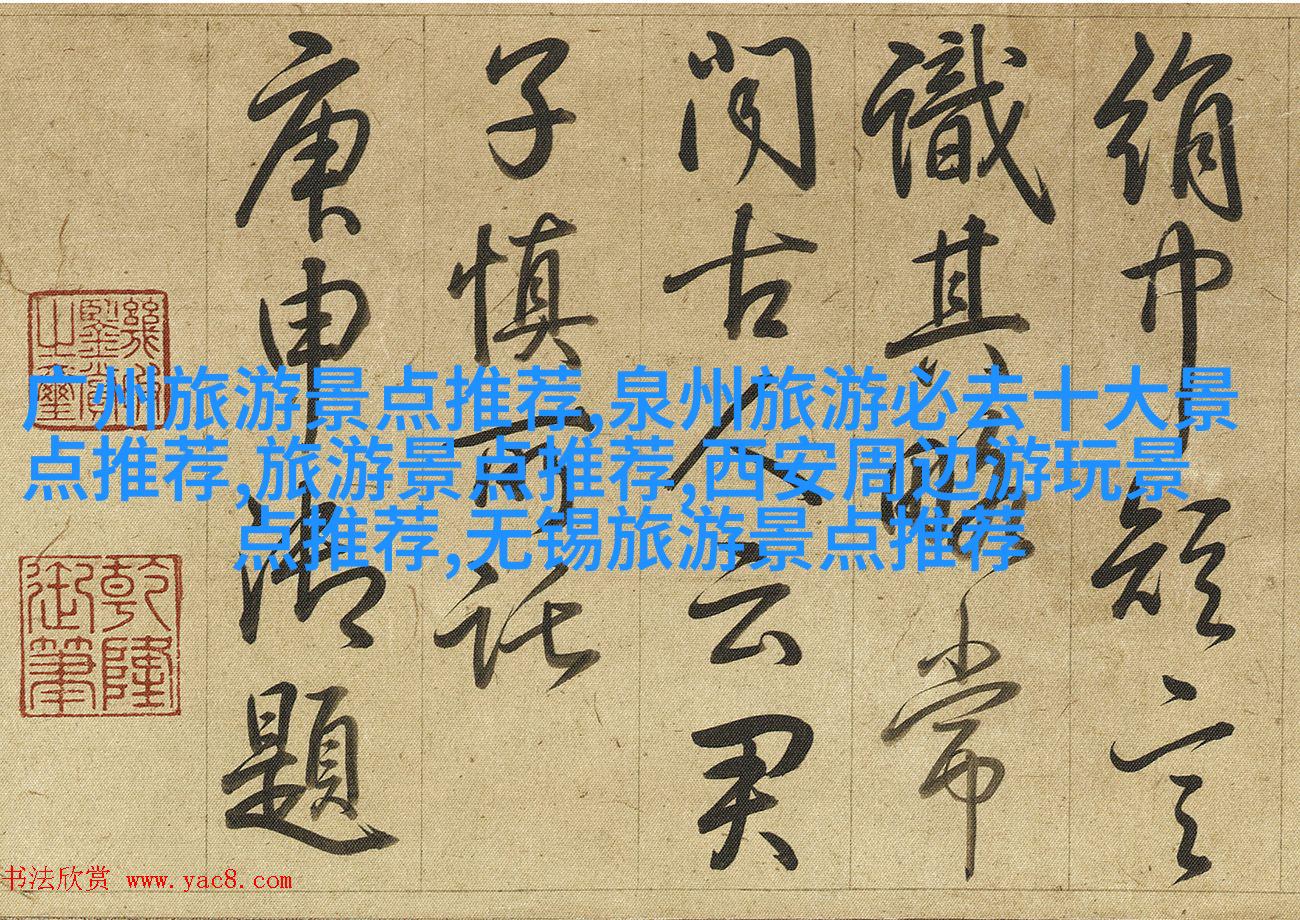 絹巾 言
識其略常
聞古人云君
子慎所託
庚申御題
幾暇鑒賞之璽
乾隆御筆
广州旅游景点推荐,泉州旅游必去十大景
点推荐,旅游景点推荐,西安周边游玩景
点推荐,无锡旅游景点推荐
书法欣赏 www.yac8.com